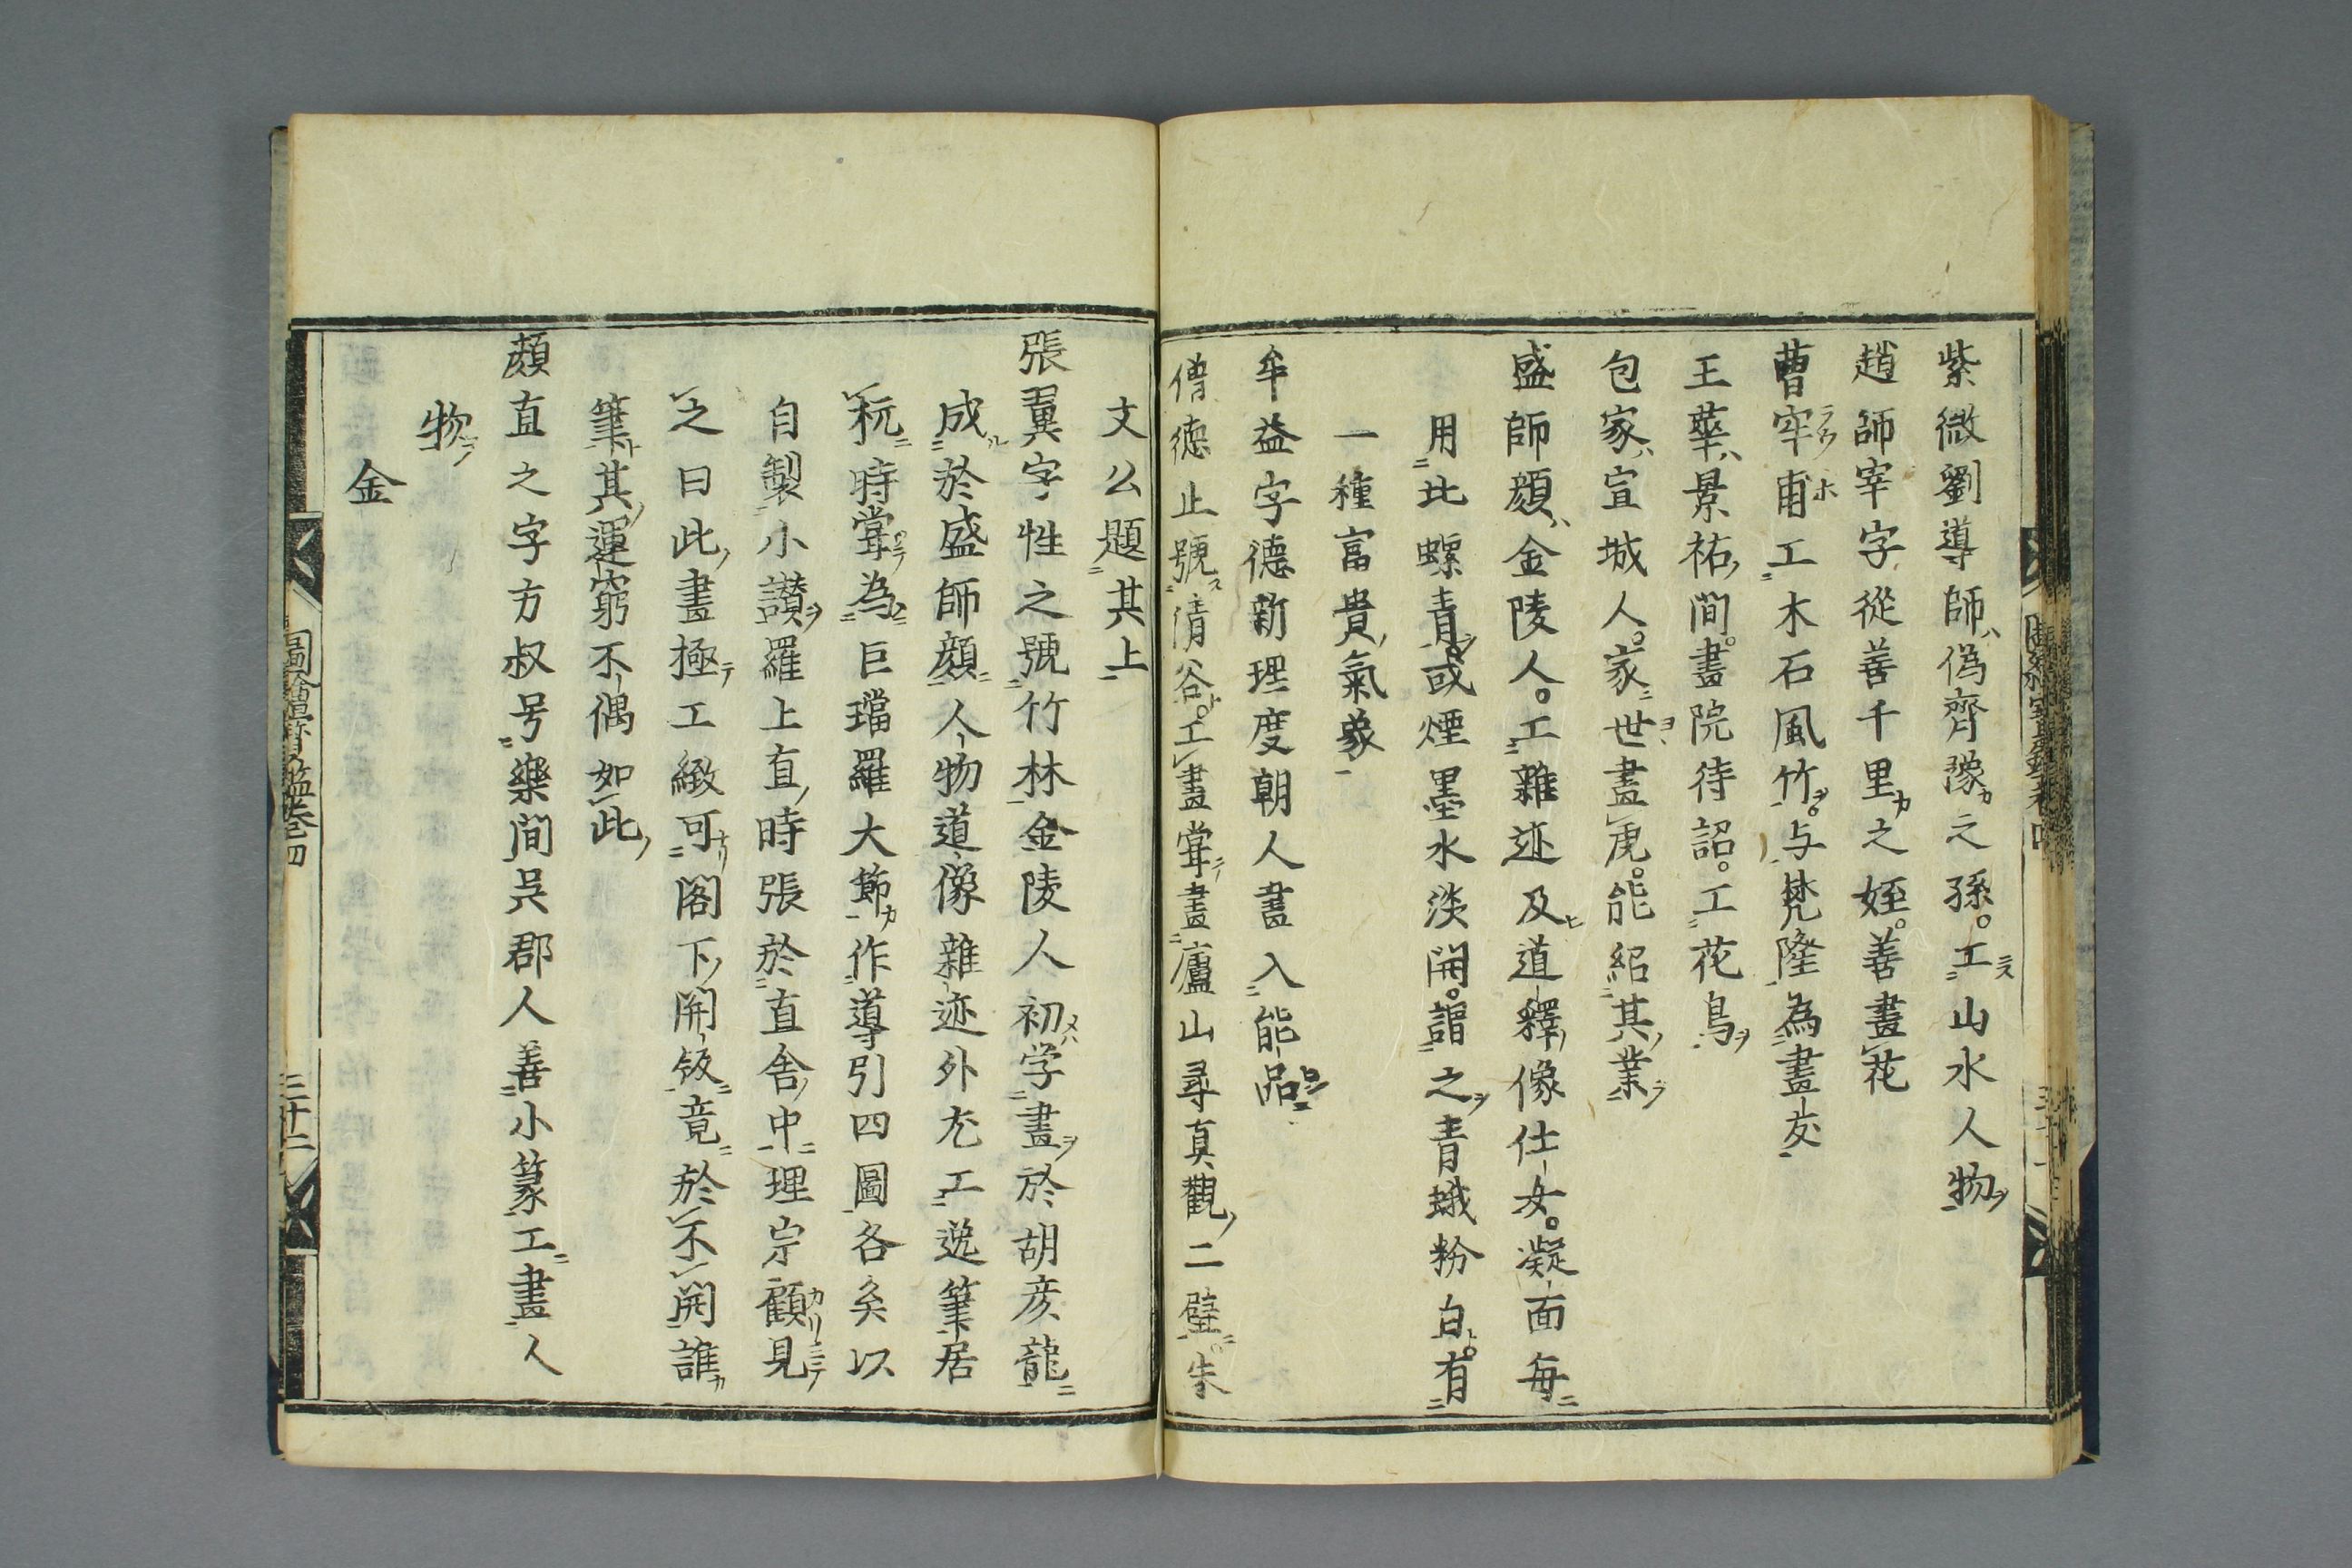 紫微劉導師偽齊豫之孫。工山水人物
趙師宰字從善千里之姪。善畫花
曹宰甫工木石風竹。与梵隆為畫友
王華景祐間。畫院待詔。工花鳥
包家宣城人。家世畫虎。能紹其業
盛師顔金陵人。工雜迹及道釋像仕女。凝面每
用北螺青。或煙墨水淡開。謂之青蛾粉白。有
一種富貴氣象
牟益字德新理度朝人畵入能品
僧德止號清谷。工畫甞畫廬山尋真觀二壁。朱
文公題其上
張翼字性之號竹林金陵人初学畫於胡彦龍
成於盛師顔人物道像雜迹外尤工逸筆居
杬時甞為巨璫羅大節作導引四圖各矣以
自製小讃羅上直時張於直舎中理宗顧見
之曰此畫極工緻可閣下開板竟於不開誰
筆其運窮不偶如此
顔直之字方叔号樂間呉郡人善小篆工畫人
物
金
圖繪寳鑑卷四
三十二